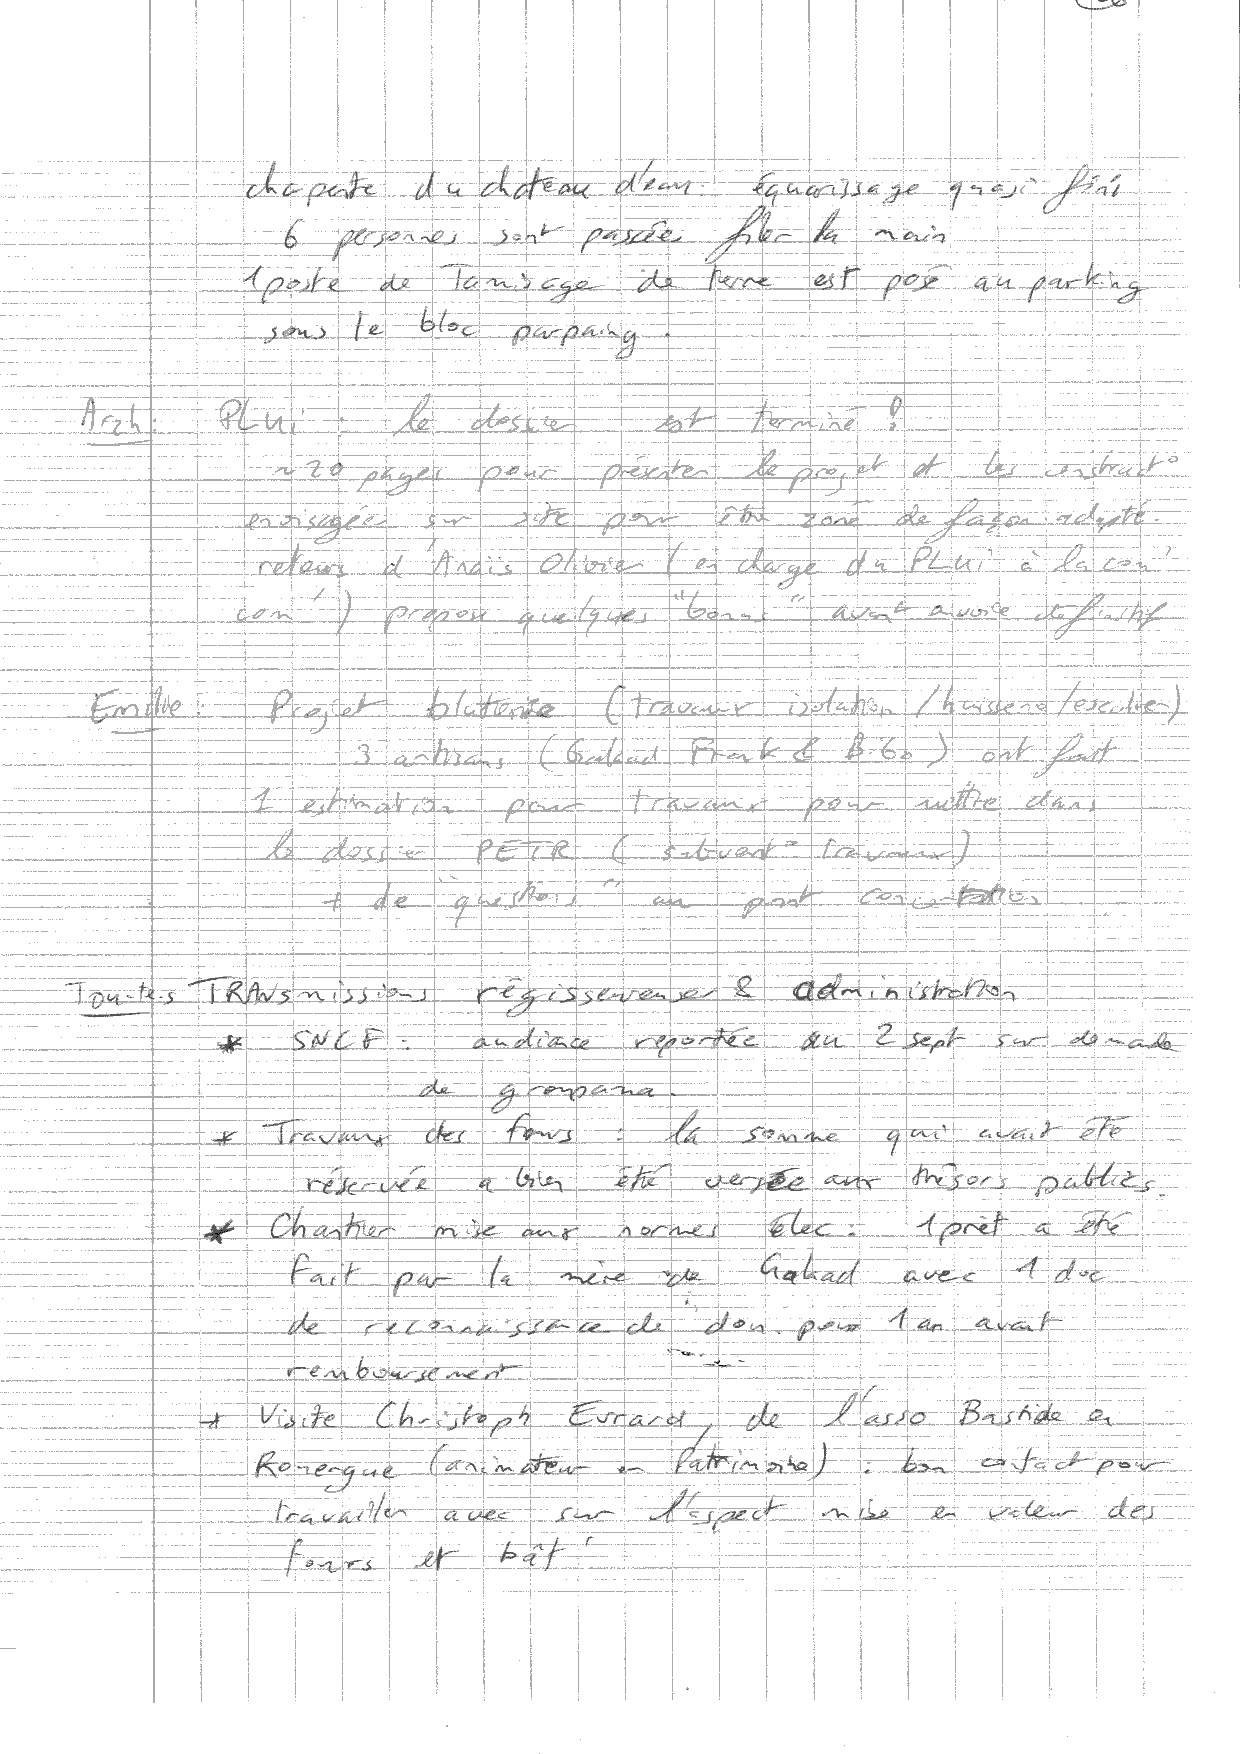 chapente du chateau d'eau : équarissage quasi fini
6 personnes sont passées filer la main
1 poste de Tamisage de terre est posé au parking
sous le bloc parpaing.
Arzh : PLUi : le dossier est terminé !
~20 pages pour présenter le projet et les construct°
envisagées sur site pour être zoné de façon adapté.
retours d'Anaïs Olivier (en charge du PLUi à la com'
com') propose quelques "bonus" avant avoir définitif
Emilie : Projet bluterie (travaux isolation / huisserie / escalier)
3 artisans (Galaad Frank & B-Go) ont fait
1 estimation pour travaux pour mettre dans
le dossier PETR (subvent° travaux)
+ de "questions" au point concertation
Tou-te-s TRANsmissions régisseureuses & administration
* SNCF : audiance reportée au 2 sept sur demade
de groupama.
* Travaux des fours : la somme qui avait été
réservée a bien été versée aux trésors publics.
* Chantier mise aux normes élec : 1 prêt a été
fait par la mère de Galaad avec 1 doc
de reconnaissance de don pour 1 an avant
remboursement
* Visite Christoph Evrard, de l'asso Bastide en
Rouergue (animateur en Patrimoine) : bon contact pour
travailler avec sur l'aspect mise en valeur des
fours et bât'